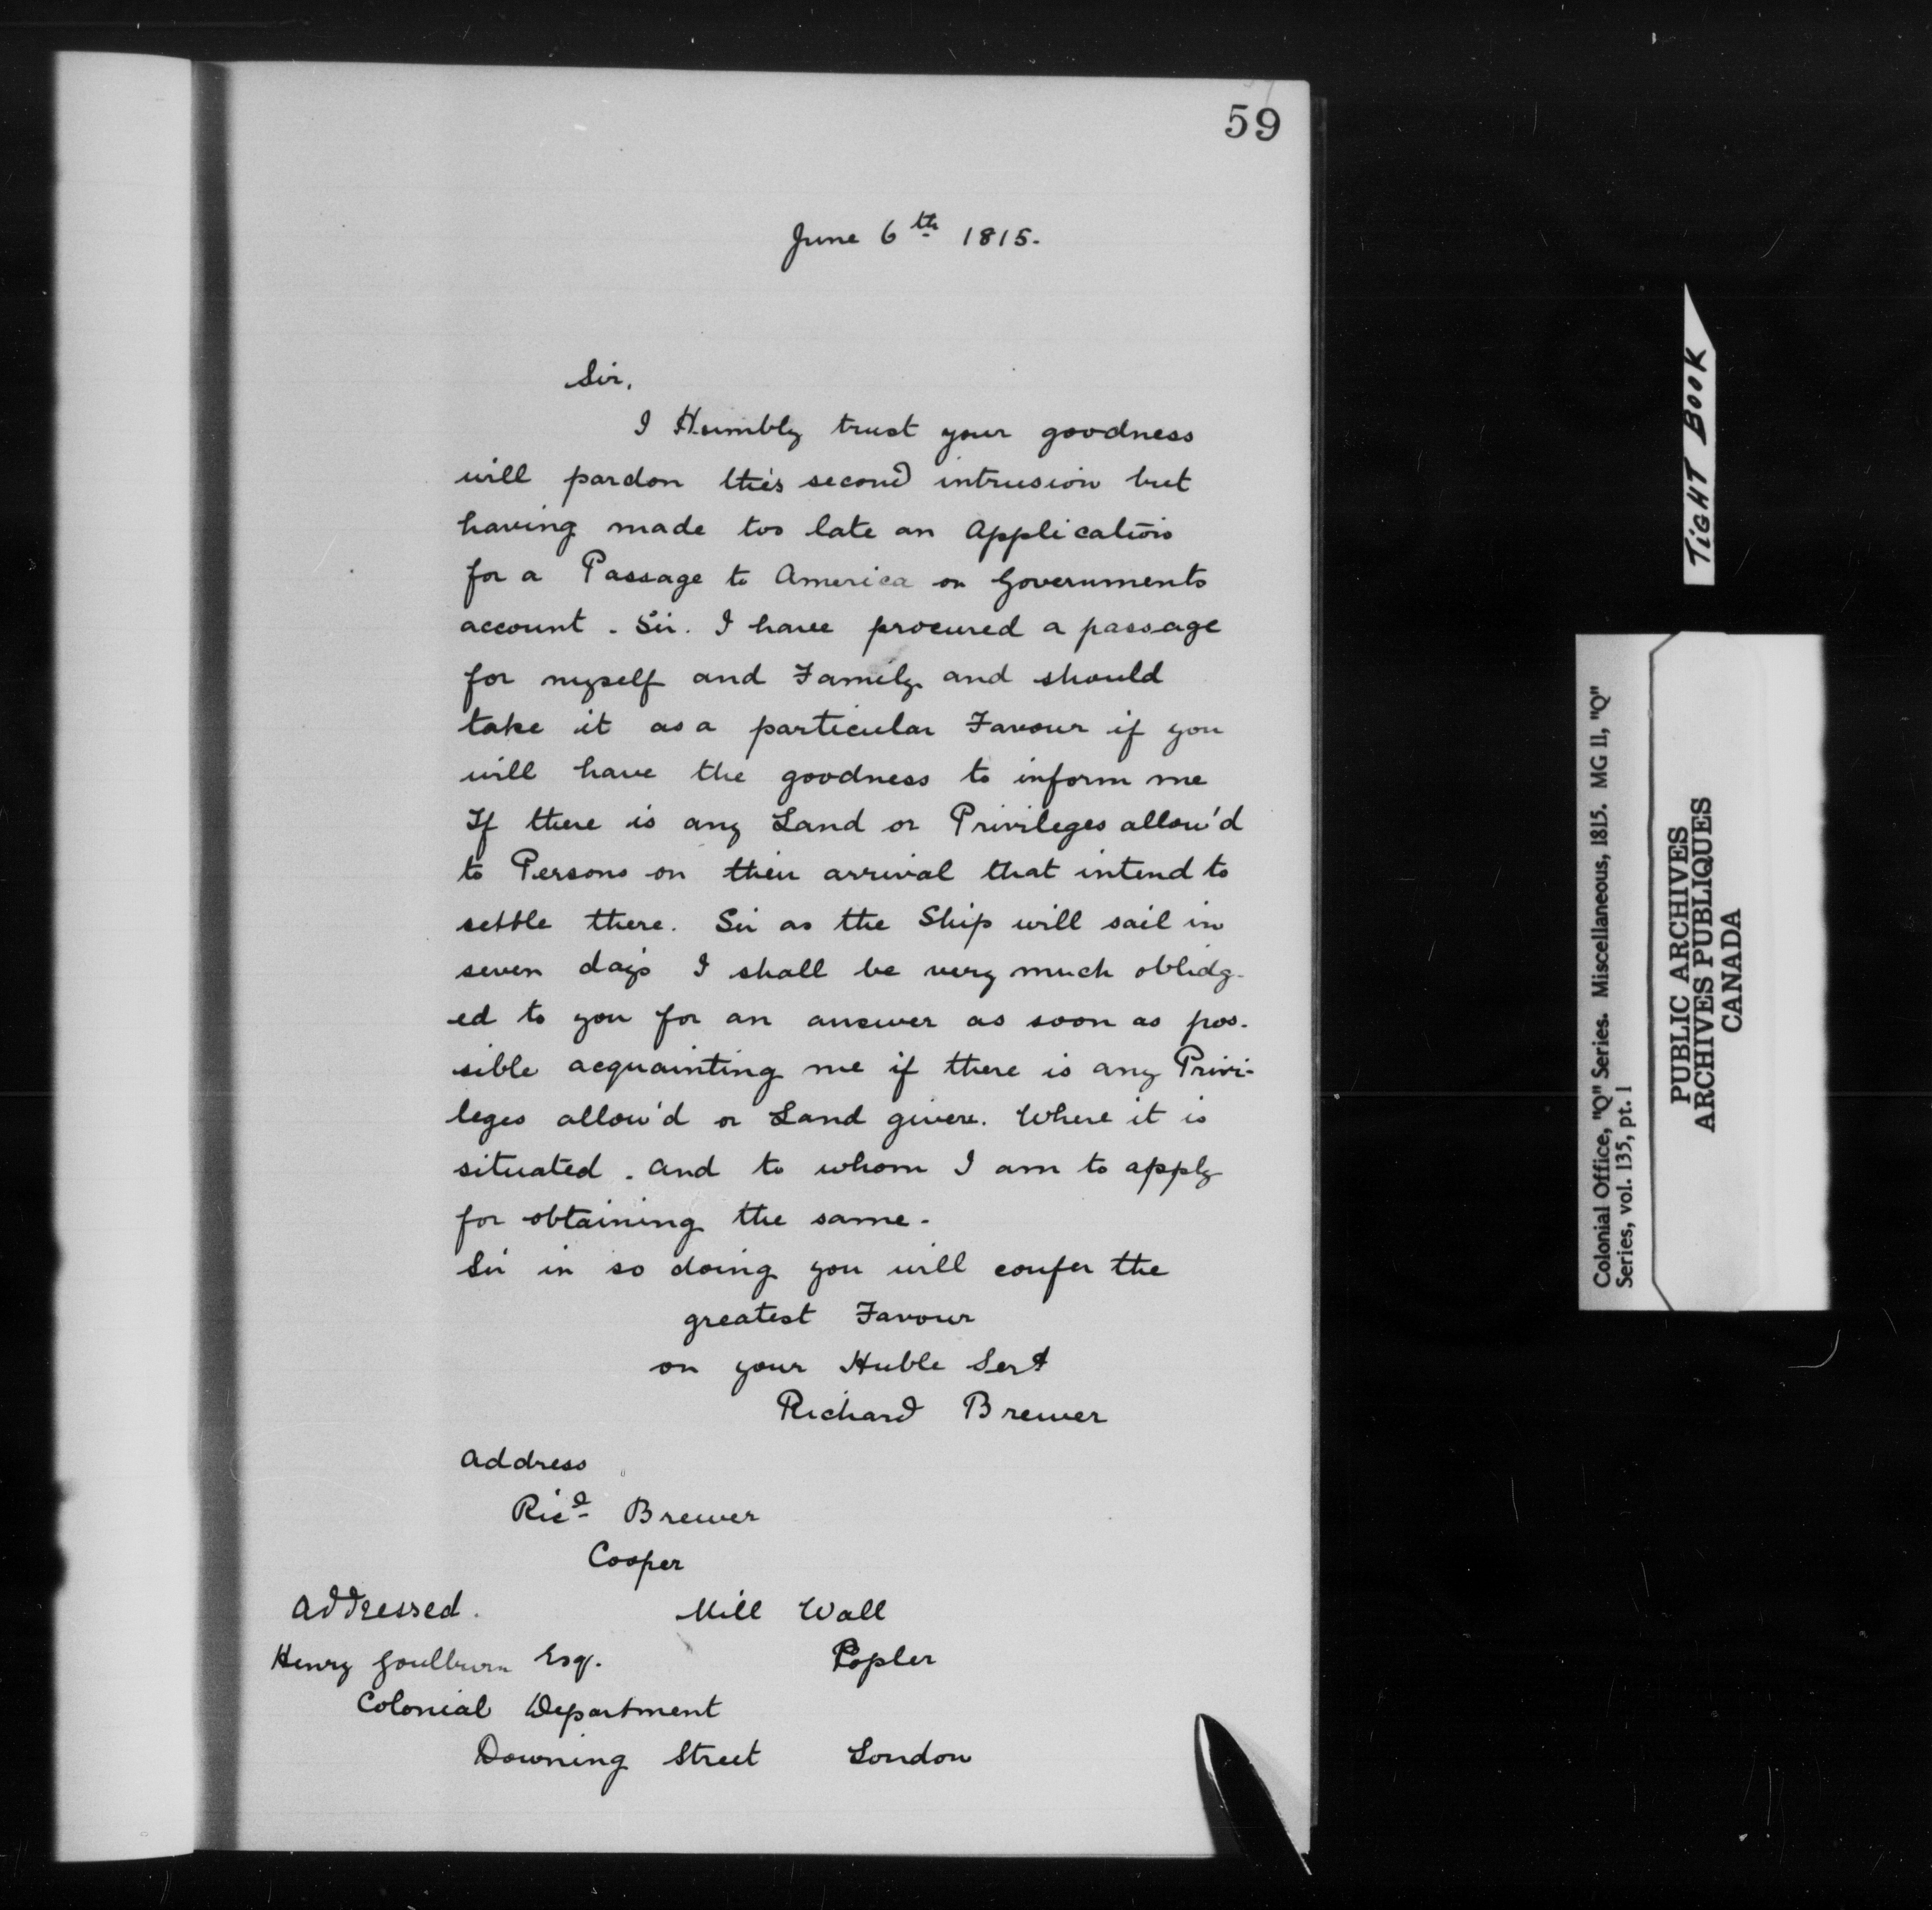 59
June 6th 1815.
Sir,
I Humbly trust your goodness
will pardon this second intrusion but
having made too late an Application
for a Passage to America on Governments
account. Sir. I have procured a passage
for myself and Family and should
take it as a particular Favour if you
will have the goodness to inform me
If there is any Land or Privileges allow'd
to Persons on their arrival that intend to
settle there. Sir as the Ship will sail in
seven days I shall be very much oblidg-
ed to you for an answer as soon as pos-
sible acquainting me if there is any Privi-
leges allow'd or Land given. Where it is
situated. and to whom I am to apply
for obtaining the same.
Sir in so doing you will confer the
greatest Favour
on your Huble Sert
Richard Brewer
Address
Ricd Brewer
Cooper
Mill Wall
Popler
Addressed.
Henry Goulburn Esq.
Colonial Department
Downing Street London
TIGHT BOOK
Colonial Office, "Q" Series. Miscellaneous, 1815. MG 11, "Q"
Series, vol. 135, pt. 1
PUBLIC ARCHIVES
ARCHIVES PUBLIQUES
CANADA